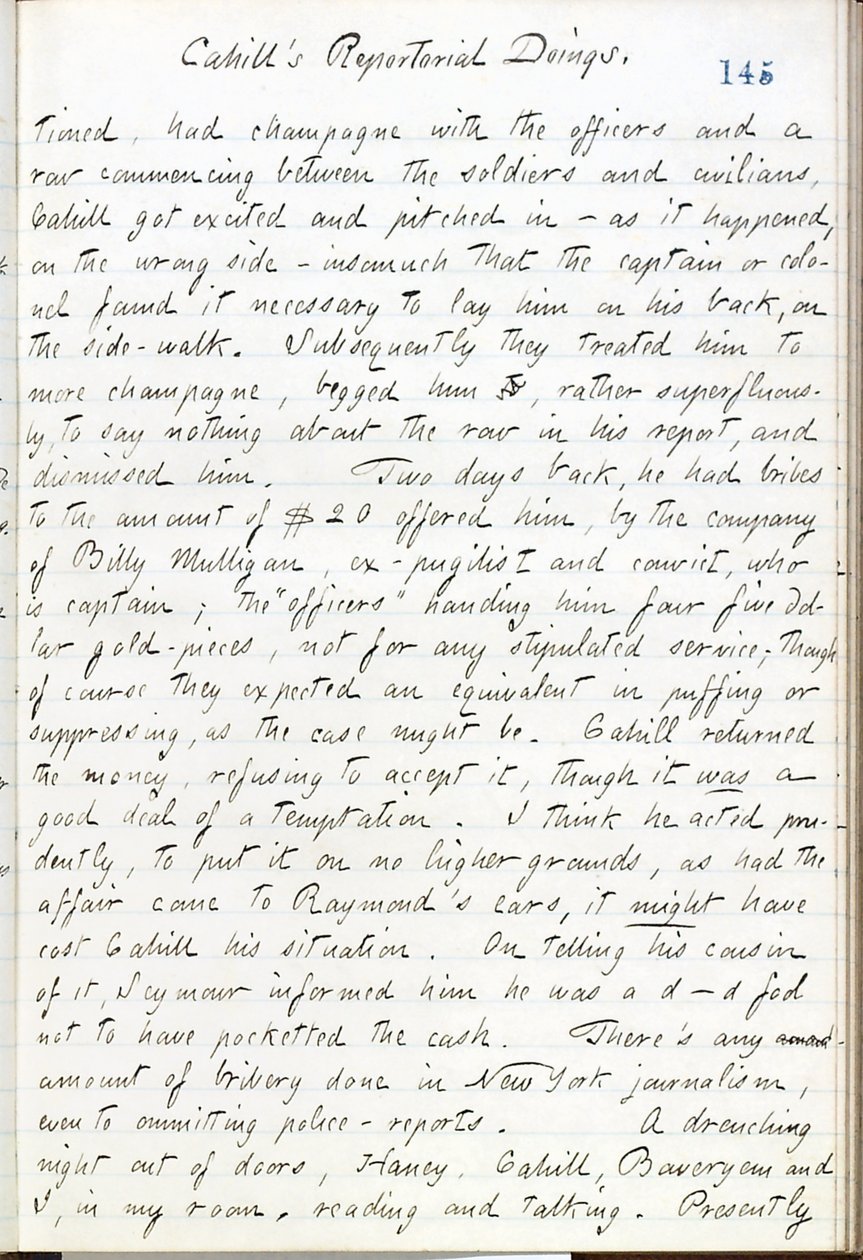 Cahill's Reportorial Doings.
145
tioned, had champagne with the officers and a
row commencing between the soldiers and civilians,
Cahill got excited and pitched in - as it happened,
on the wrong side - insomuch that the captain or colo-
nel found it necessary to lay him on his back, on
the side-walk. Subsequently they treated him to
more champagne, begged him, rather superfluous-
ly, to say nothing about the row in his report, and
dismissed him. Two days back, he had bribes
to the amount of $20 offered him, by the company
of Billy Mulligan, ex-pugilist and convict, who
is captain; the "officers" handing him four five dol-
lar gold-pieces, not for any stipulated service; though
of course they expected an equivalent in puffing or
suppressing, as the case might be. Cahill returned
the money, refusing to accept it, though it was a
good deal of a temptation. I think he acted pru-
dently, to put it on no higher grounds, as had the
affair come to Raymond's ears, it might have
cost Cahill his situation. On telling his cousin
of it, Seymour informed him he was a d—d fool
not to have pocketted the cash. There's any amount
amount of bribery done in New York journalism,
even to ommitting police-reports. A drenching
night out of doors, Haney, Cahill, Baveryem and
I, in my room, reading and talking. Presently